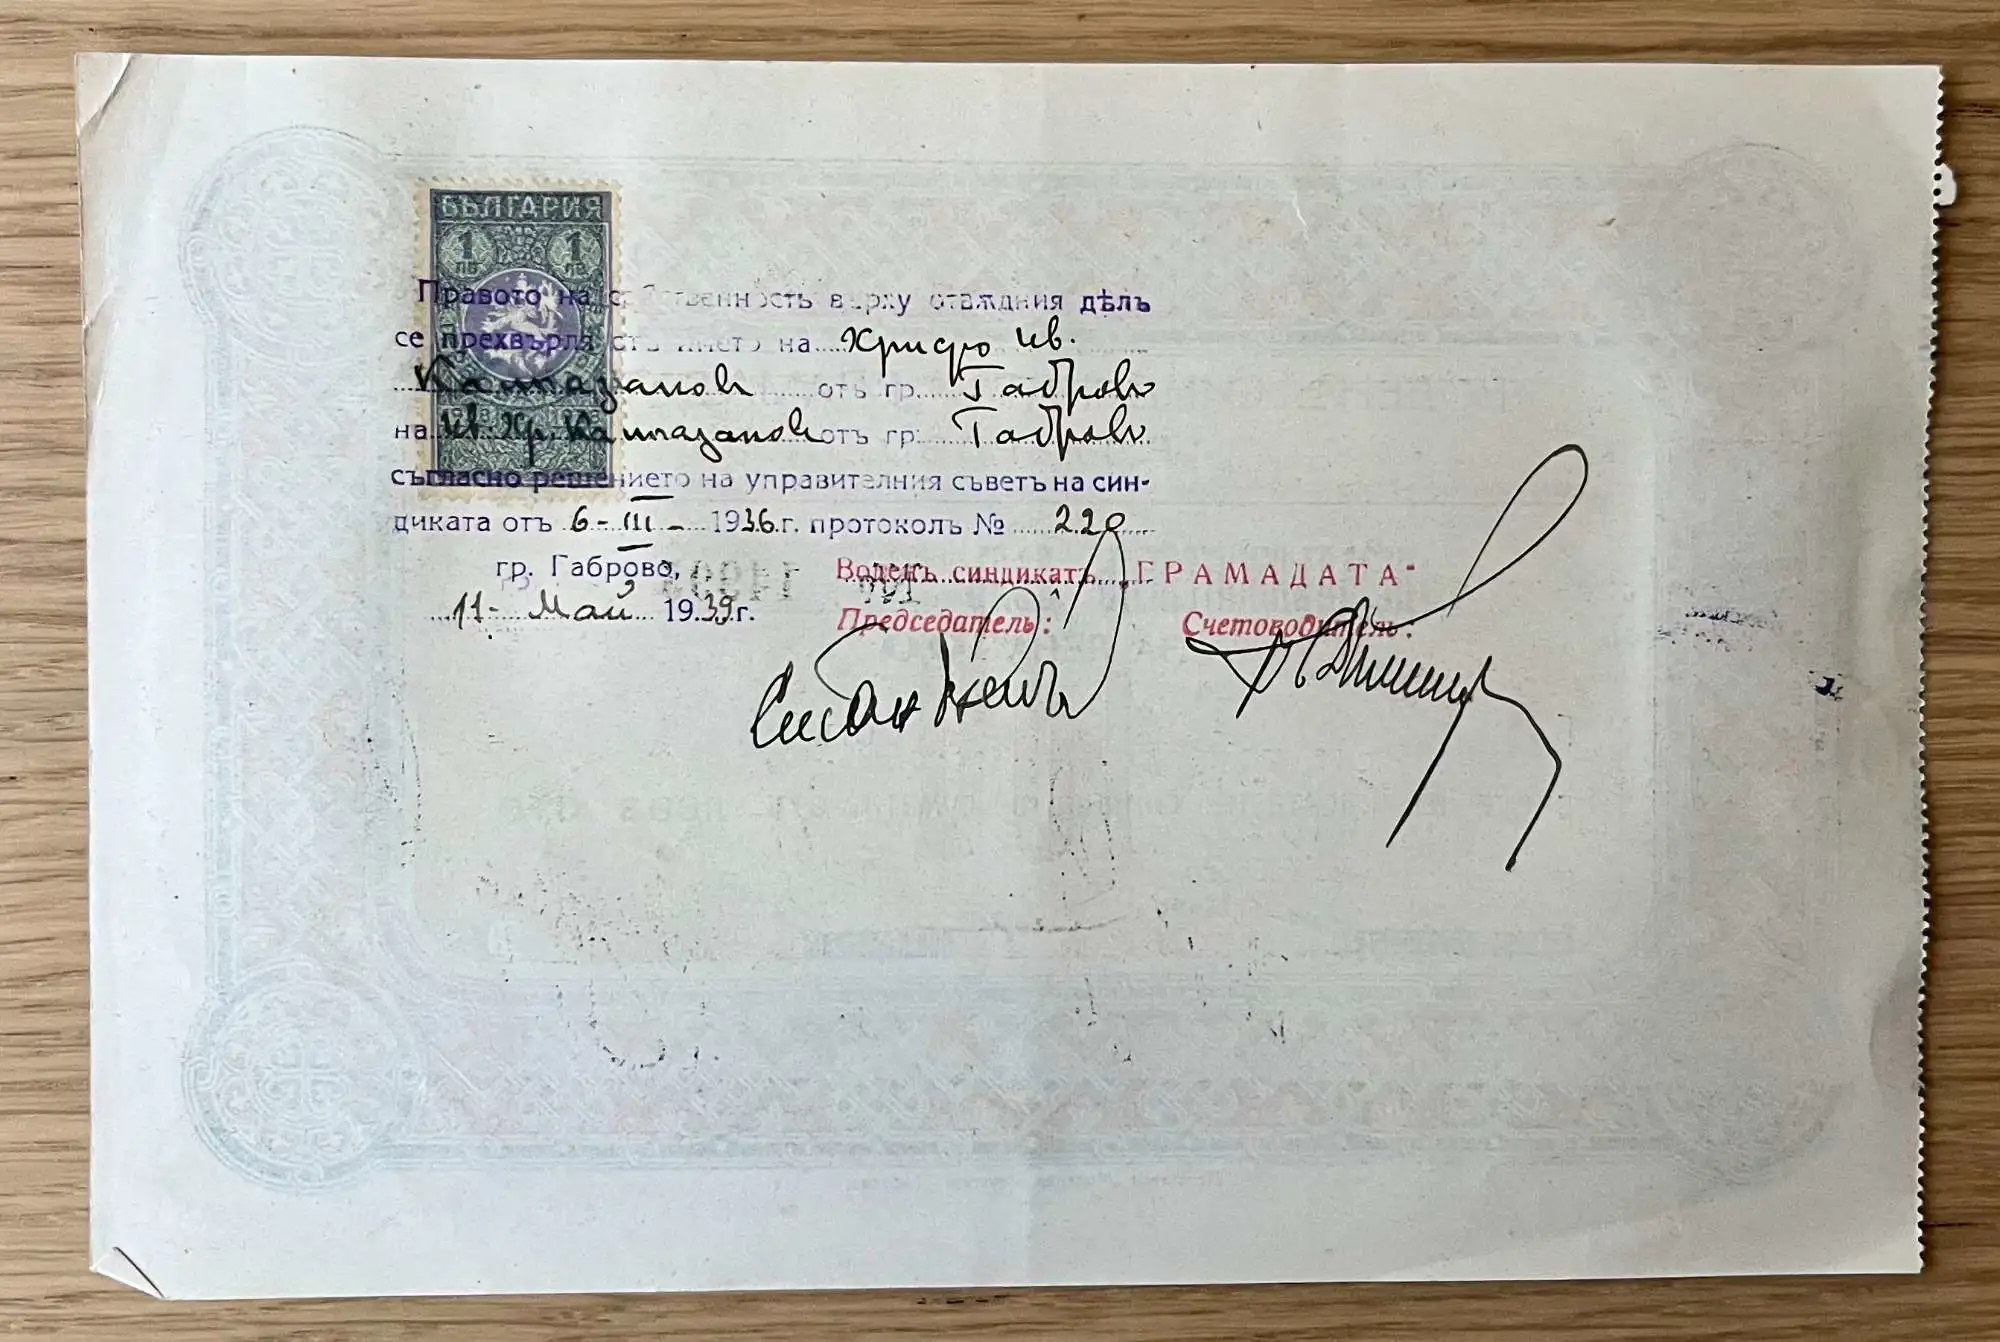 БЪЛГАРИЯ
1 1
ЛВ ЛВ
Правото на собственность върху отваждния дѣлъ
се прехвърля отъ името на Христо Ив.
Калпазановъ отъ гр. Габрово
на Ив. Хр. Калпазановъ отъ гр. Габрово
съгласно решението на управителния съветъ на син-
диката отъ 6-III- 1936 г. протоколъ № 220
гр. Габрово,
11- Май 1939 г.
Воденъ синдикатъ „ГРАМАДАТА"
Председатель: Счетоводитель: